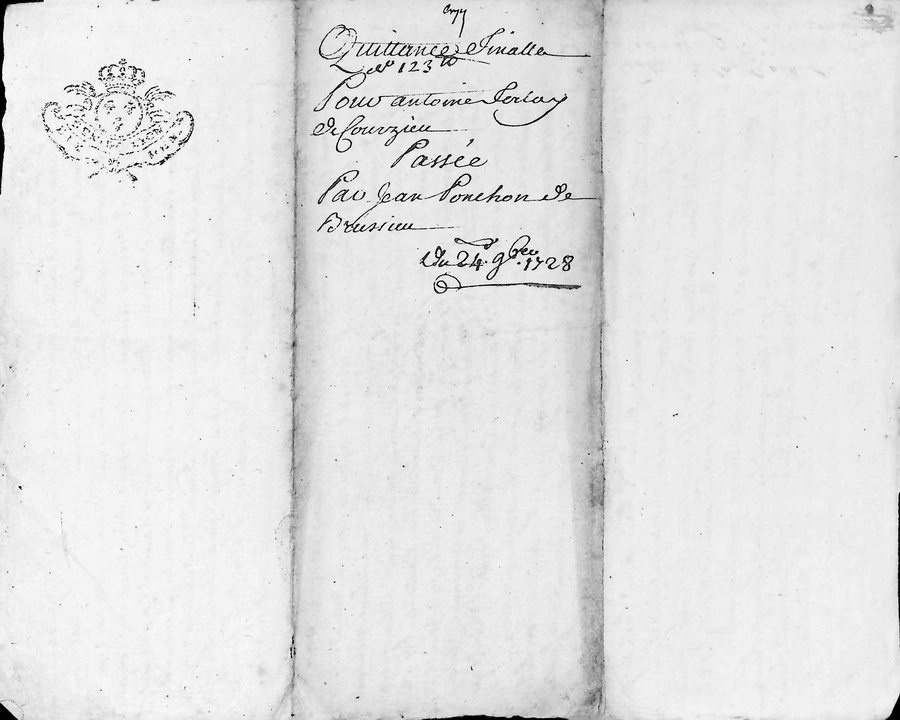 Quittance finalle
de 123 tt
Pour antoine
de Courzieu
Passée
Par Jean Ponchon de
Brussieu
Du 24 9bre 1728